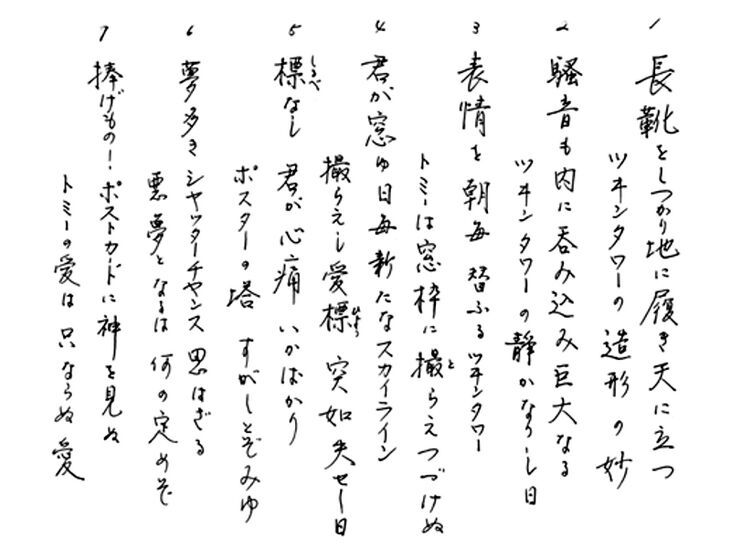 1 長靴をしつかり地に履き天に立つ
ツヰンタワーの造形の妙
2 騒音も内に呑み込み巨大なる
ツヰンタワーの静かなりし日
3 表情を朝毎替ふるツヰンタワー
トミーは窓枠に撮らえつづけぬ
と
4 君が窓ゆ日毎新たなスカイライン
撮らえし愛標突如失せし日
5 標なし 君が心痛いかばかり
しるべ
ポスターの塔 すがしとぞみゆ
6 夢多きシヤッターチヤンス思はざる
悪夢となるは何の定めぞ
7 捧げもの！ポストカードに神を見ぬ
トミーの愛は只ならぬ愛